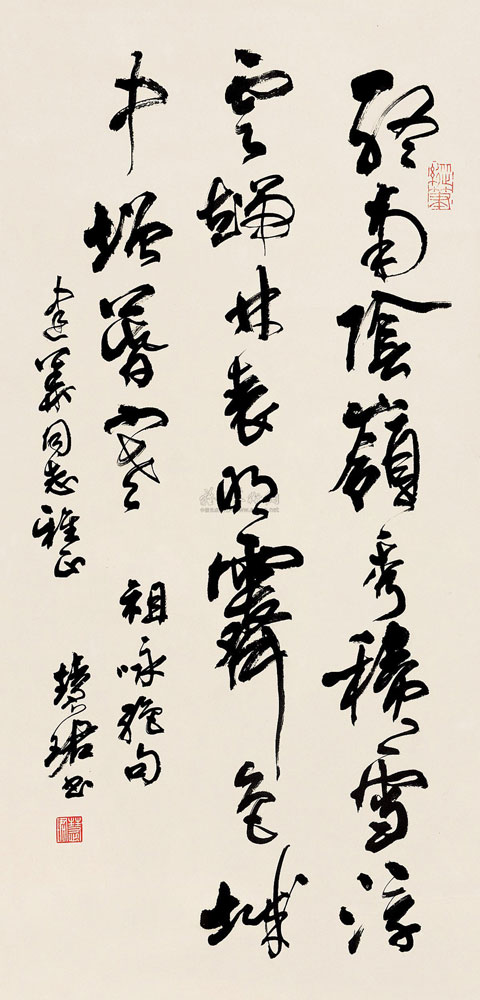 終南陰嶺秀積雪浮
雲端林表明霽色城
中增暮寒 祖咏絶句
建義同志雅正 慧珺书